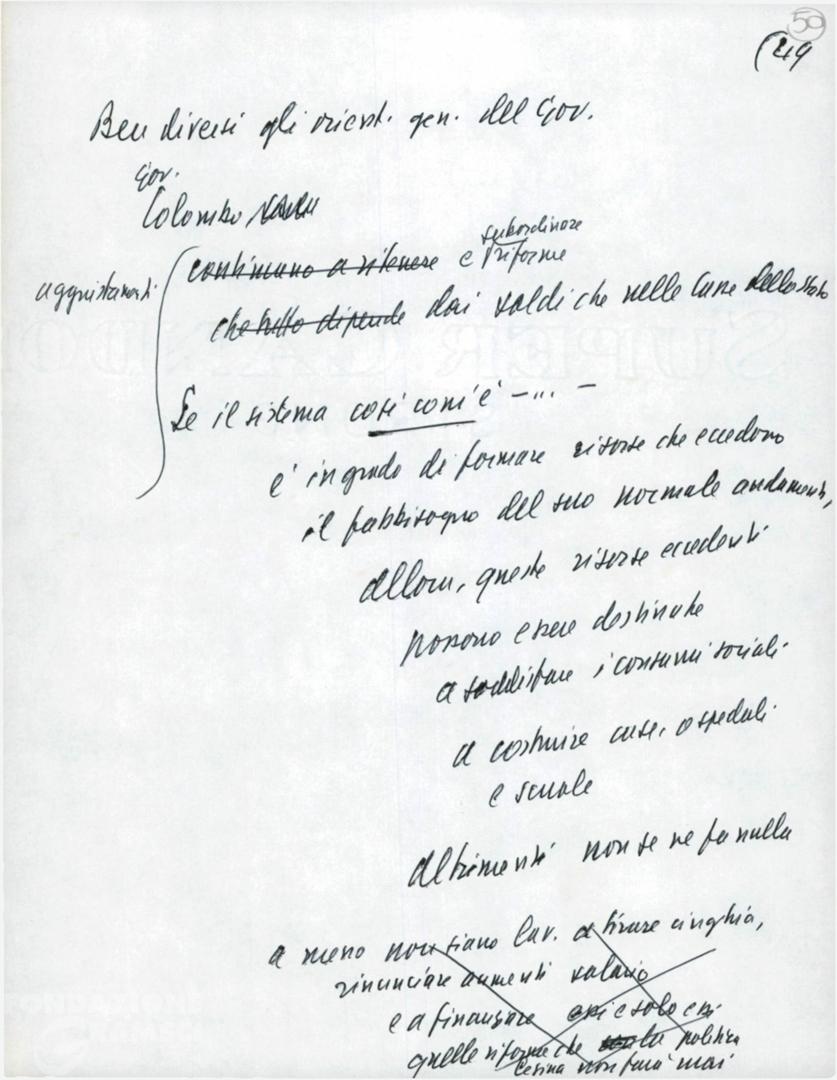 50
(49
Ben diversi gli orient. gen. del Gov.
Gov.
Colombo
subordinare
continuano a ritenere e riforme
aggiustamenti
che tutto dipende dai soldi che nelle Casse dello Stato
Se il sistema così com'è -...-
è in grado di formare risorse che eccedono
il fabbisogno del suo normale andamento,
allora, queste risorse eccedenti
possono essere destinate
a soddisfare i consumi sociali.
a costruire case, ospedali
e scuole
altrimenti non se ne fa nulla
a meno non siano lav. a tirare cinghia,
rinunciare aumenti salario
e a finanziare essi e solo essi
quelle riforme che la politica
non farà mai